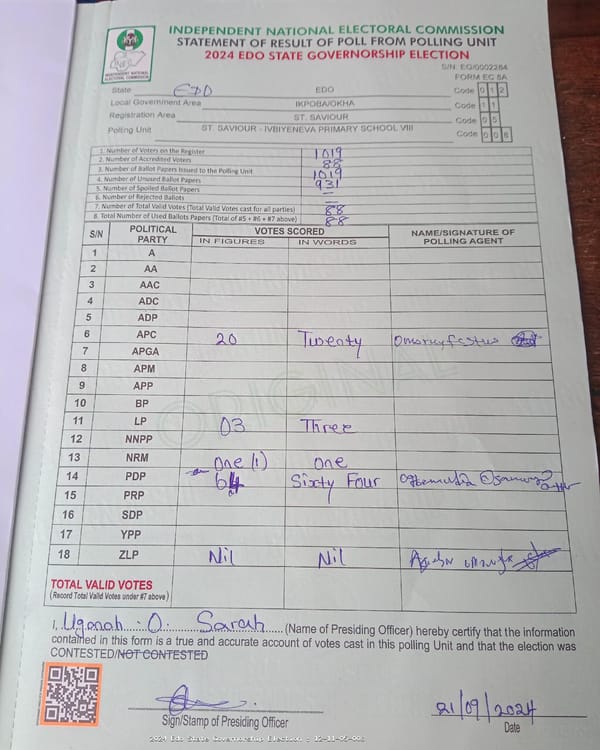 INDEPENDENT NATIONAL ELECTORAL COMMISSION
STATEMENT OF RESULT OF POLL FROM POLLING UNIT
2024 EDO STATE GOVERNORSHIP ELECTION
INEC
INDEPENDENT NATIONAL ELECTORAL COMMISSION
S/N: EG/0002264
FORM EC 8A
State EDO EDO Code 0 1 2
Local Government Area IKPOBA/OKHA Code 1 1
Registration Area ST. SAVIOUR Code 0 5
Polling Unit ST. SAVIOUR - IVBIYENEVA PRIMARY SCHOOL VIII Code 0 0 8
1. Number of Voters on the Register 1019
2. Number of Accredited Voters 88
3. Number of Ballot Papers Issued to the Polling Unit 1019
4. Number of Unused Ballot Papers 931
5. Number of Spoiled Ballot Papers –
6. Number of Rejected Ballots –
7. Number of Total Valid Votes (Total Valid Votes cast for all parties) 88
8. Total Number of Used Ballots Papers (Total of #5 + #6 + #7 above) 88
S/N POLITICAL PARTY VOTES SCORED NAME/SIGNATURE OF POLLING AGENT
IN FIGURES IN WORDS
1 A
2 AA
3 AAC
4 ADC
5 ADP
6 APC 20 Twenty
7 APGA
8 APM
9 APP
10 BP
11 LP 03 Three
12 NNPP
13 NRM One (1) One
14 PDP 64 Sixty Four
15 PRP
16 SDP
17 YPP
18 ZLP Nil Nil
ORIGINAL
TOTAL VALID VOTES
(Record Total Valid Votes under #7 above)
I, Uganah . O. Sarah (Name of Presiding Officer) hereby certify that the information
contained in this form is a true and accurate account of votes cast in this polling Unit and that the election was
CONTESTED/NOT CONTESTED
21/09/2024
Sign/Stamp of Presiding Officer Date
2024 Edo State Governorship Election : 12-11-05-008